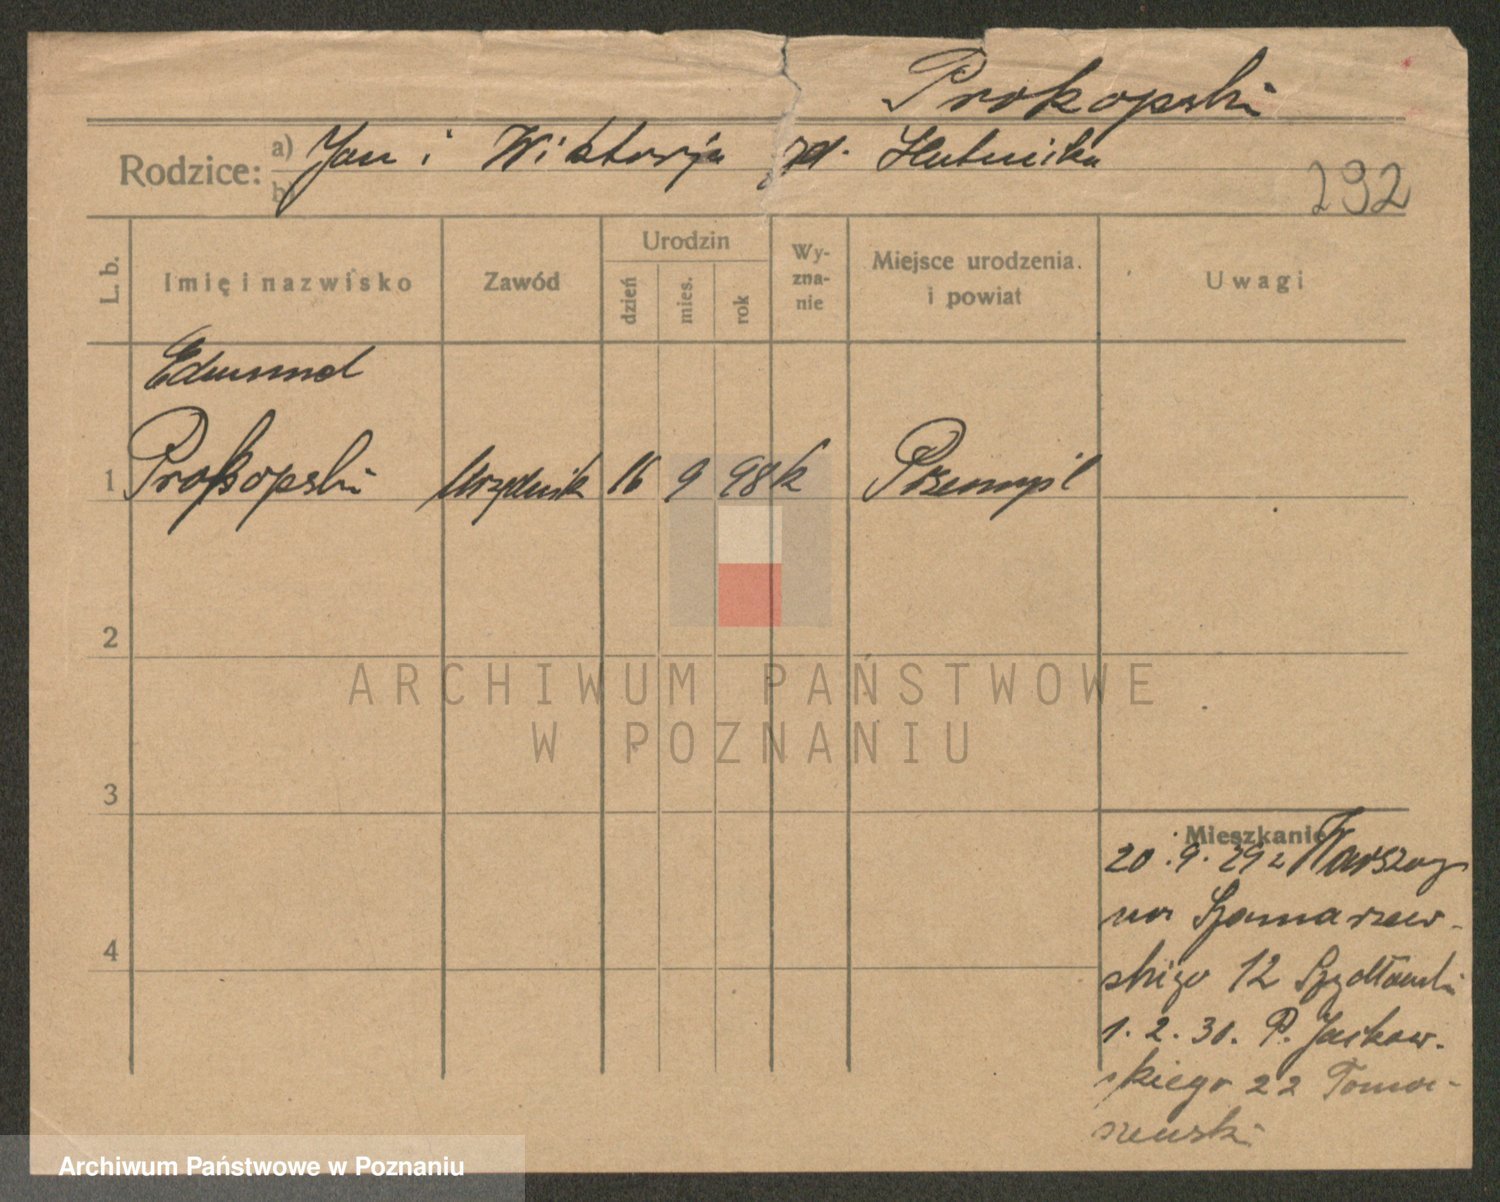 Prokopski
Rodzice: a) Jan i Wiktorja zd. Hutnicka
b)
292
L. b.
Imię i nazwisko
Zawód
Urodzin
dzień
mies.
rok
Wy-
zna-
nie
Miejsce urodzenia.
i powiat
Uwagi
Edmund
1 Prokopski Urzędnik 16 9 98 k Przemyśl
2
3
4
Mieszkanie
20.9.29 z Warszawy
na Szamarzew-
skiego 12 Szydłowski
1.2.30. P. Jackow-
skiego 22 Toma-
szewski
ARCHIWUM PAŃSTWOWE
W POZNANIU
Archiwum Państwowe w Poznaniu